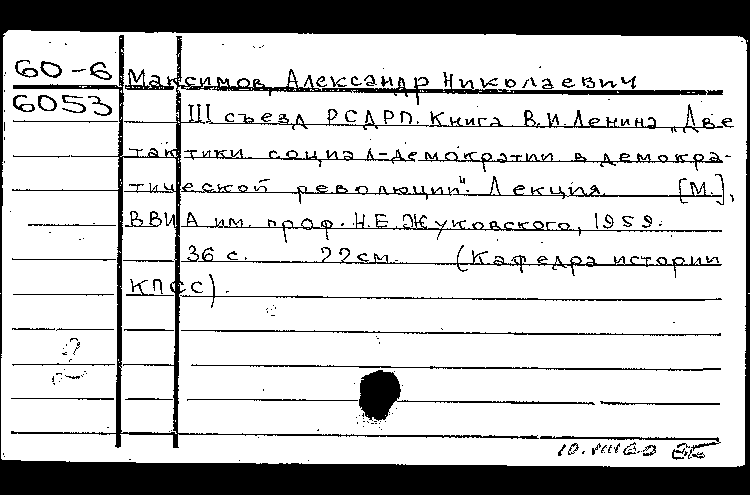 60-6 Максимов, Александр Николаевич
6053 III съезд РСДРП. Книга В.И.Ленина „Две
тактики социал-демократии в демокра-
тической революции". Лекция. [М.],
ВВИА им. проф. Н.Е.Жуковского, 1959.
36 с. 22см. (Кафедра истории
КПСС).
10.VIII 60